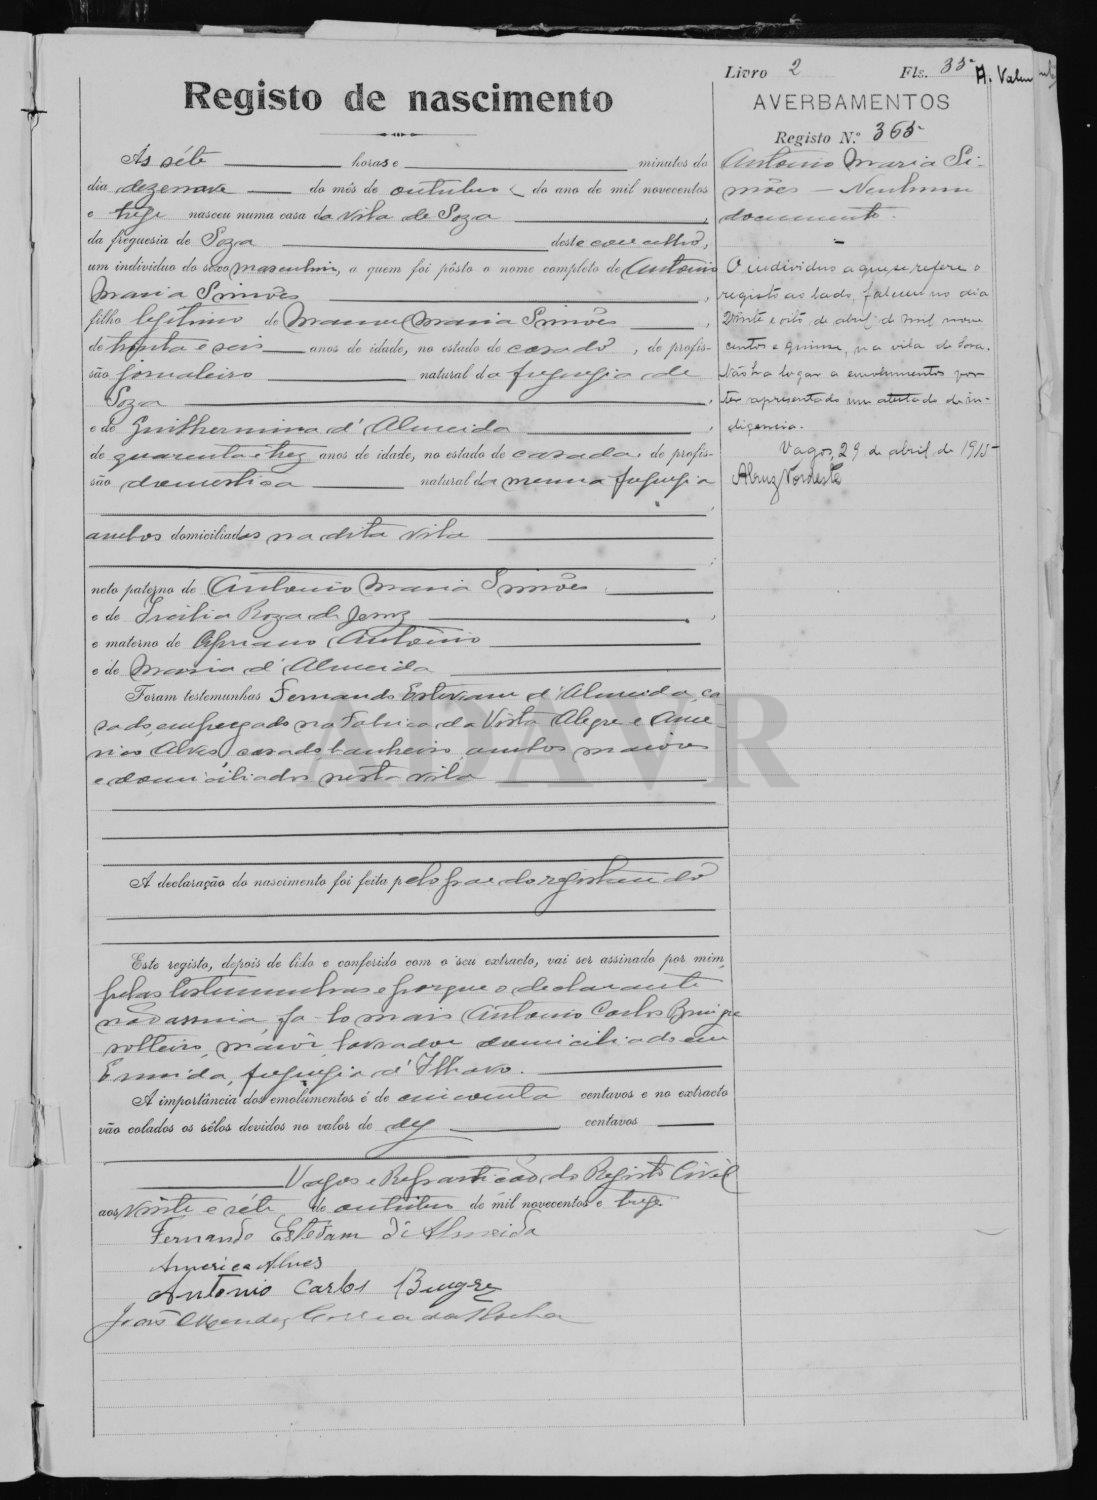 Livro 2 Fls. 35
A. Valen
Registo de nascimento
AVERBAMENTOS
Registo N.º 365
Antonio Maria Si-
mões — Nenhum
documento.
O individuo a que se refere o
registo ao lado, faleceu no dia
vinte e oito de abril de mil nove
centos e quinze, na vila de Soza.
Não ha logar a emolumentos por
ter apresentado um atestado de in-
digencia.
Vagos, 29 de abril de 1915
As séte horas e minutos do
dia dezenove do mês de outubro do ano de mil novecentos
e treze nasceu numa casa da vila de Soza ,
da freguesia de Soza deste concelho,
um individuo do sexo masculino, a quem foi pôsto o nome completo de Antonio
Maria Simões ,
filho legitimo de Manuel Maria Simões ,
de trinta e seis anos de idade, no estado de casado , de profis-
são jornaleiro natural da freguezia de
Soza ,
e de Guilhermina d'Almeida ,
de quarenta e trez anos de idade, no estado de casada, de profis-
são domestica natural da mesma freguezia
,
ambos domiciliados na dita vila
neto paterno de Antonio Maria Simões
e de Roza de Jesus ,
e materno de Cipriano Antonio
e de Maria d'Almeida
Foram testemunhas Fernando Estevam d'Almeida, ca
sado, empregado na Fabrica da Vista Alegre e Ame
rico Alves, casado, banheiro, ambos maiores
e domiciliados nesta vila
ADAVR
A declaração do nascimento foi feita pelo pae do registando
Este registo, depois de lido e conferido com o seu extracto, vai ser assinado por mim,
pelas testemunhas e porque o declarante
não assina, fa-lo mais Antonio Carlos
solteiro, maior, lavrador domiciliado em
Ermida, freguezia d'Ilhavo.
A importância dos emolumentos é de cincoenta centavos e no extracto
vão colados os sêlos devidos no valor de dez centavos
Vagos e Repartição do Registo Civil
aos vinte e séte de outubro de mil novecentos e treze.
Fernando Estevam d'Almeida
Americo Alves
Antonio Carlos
João Mendes Correia da Rocha